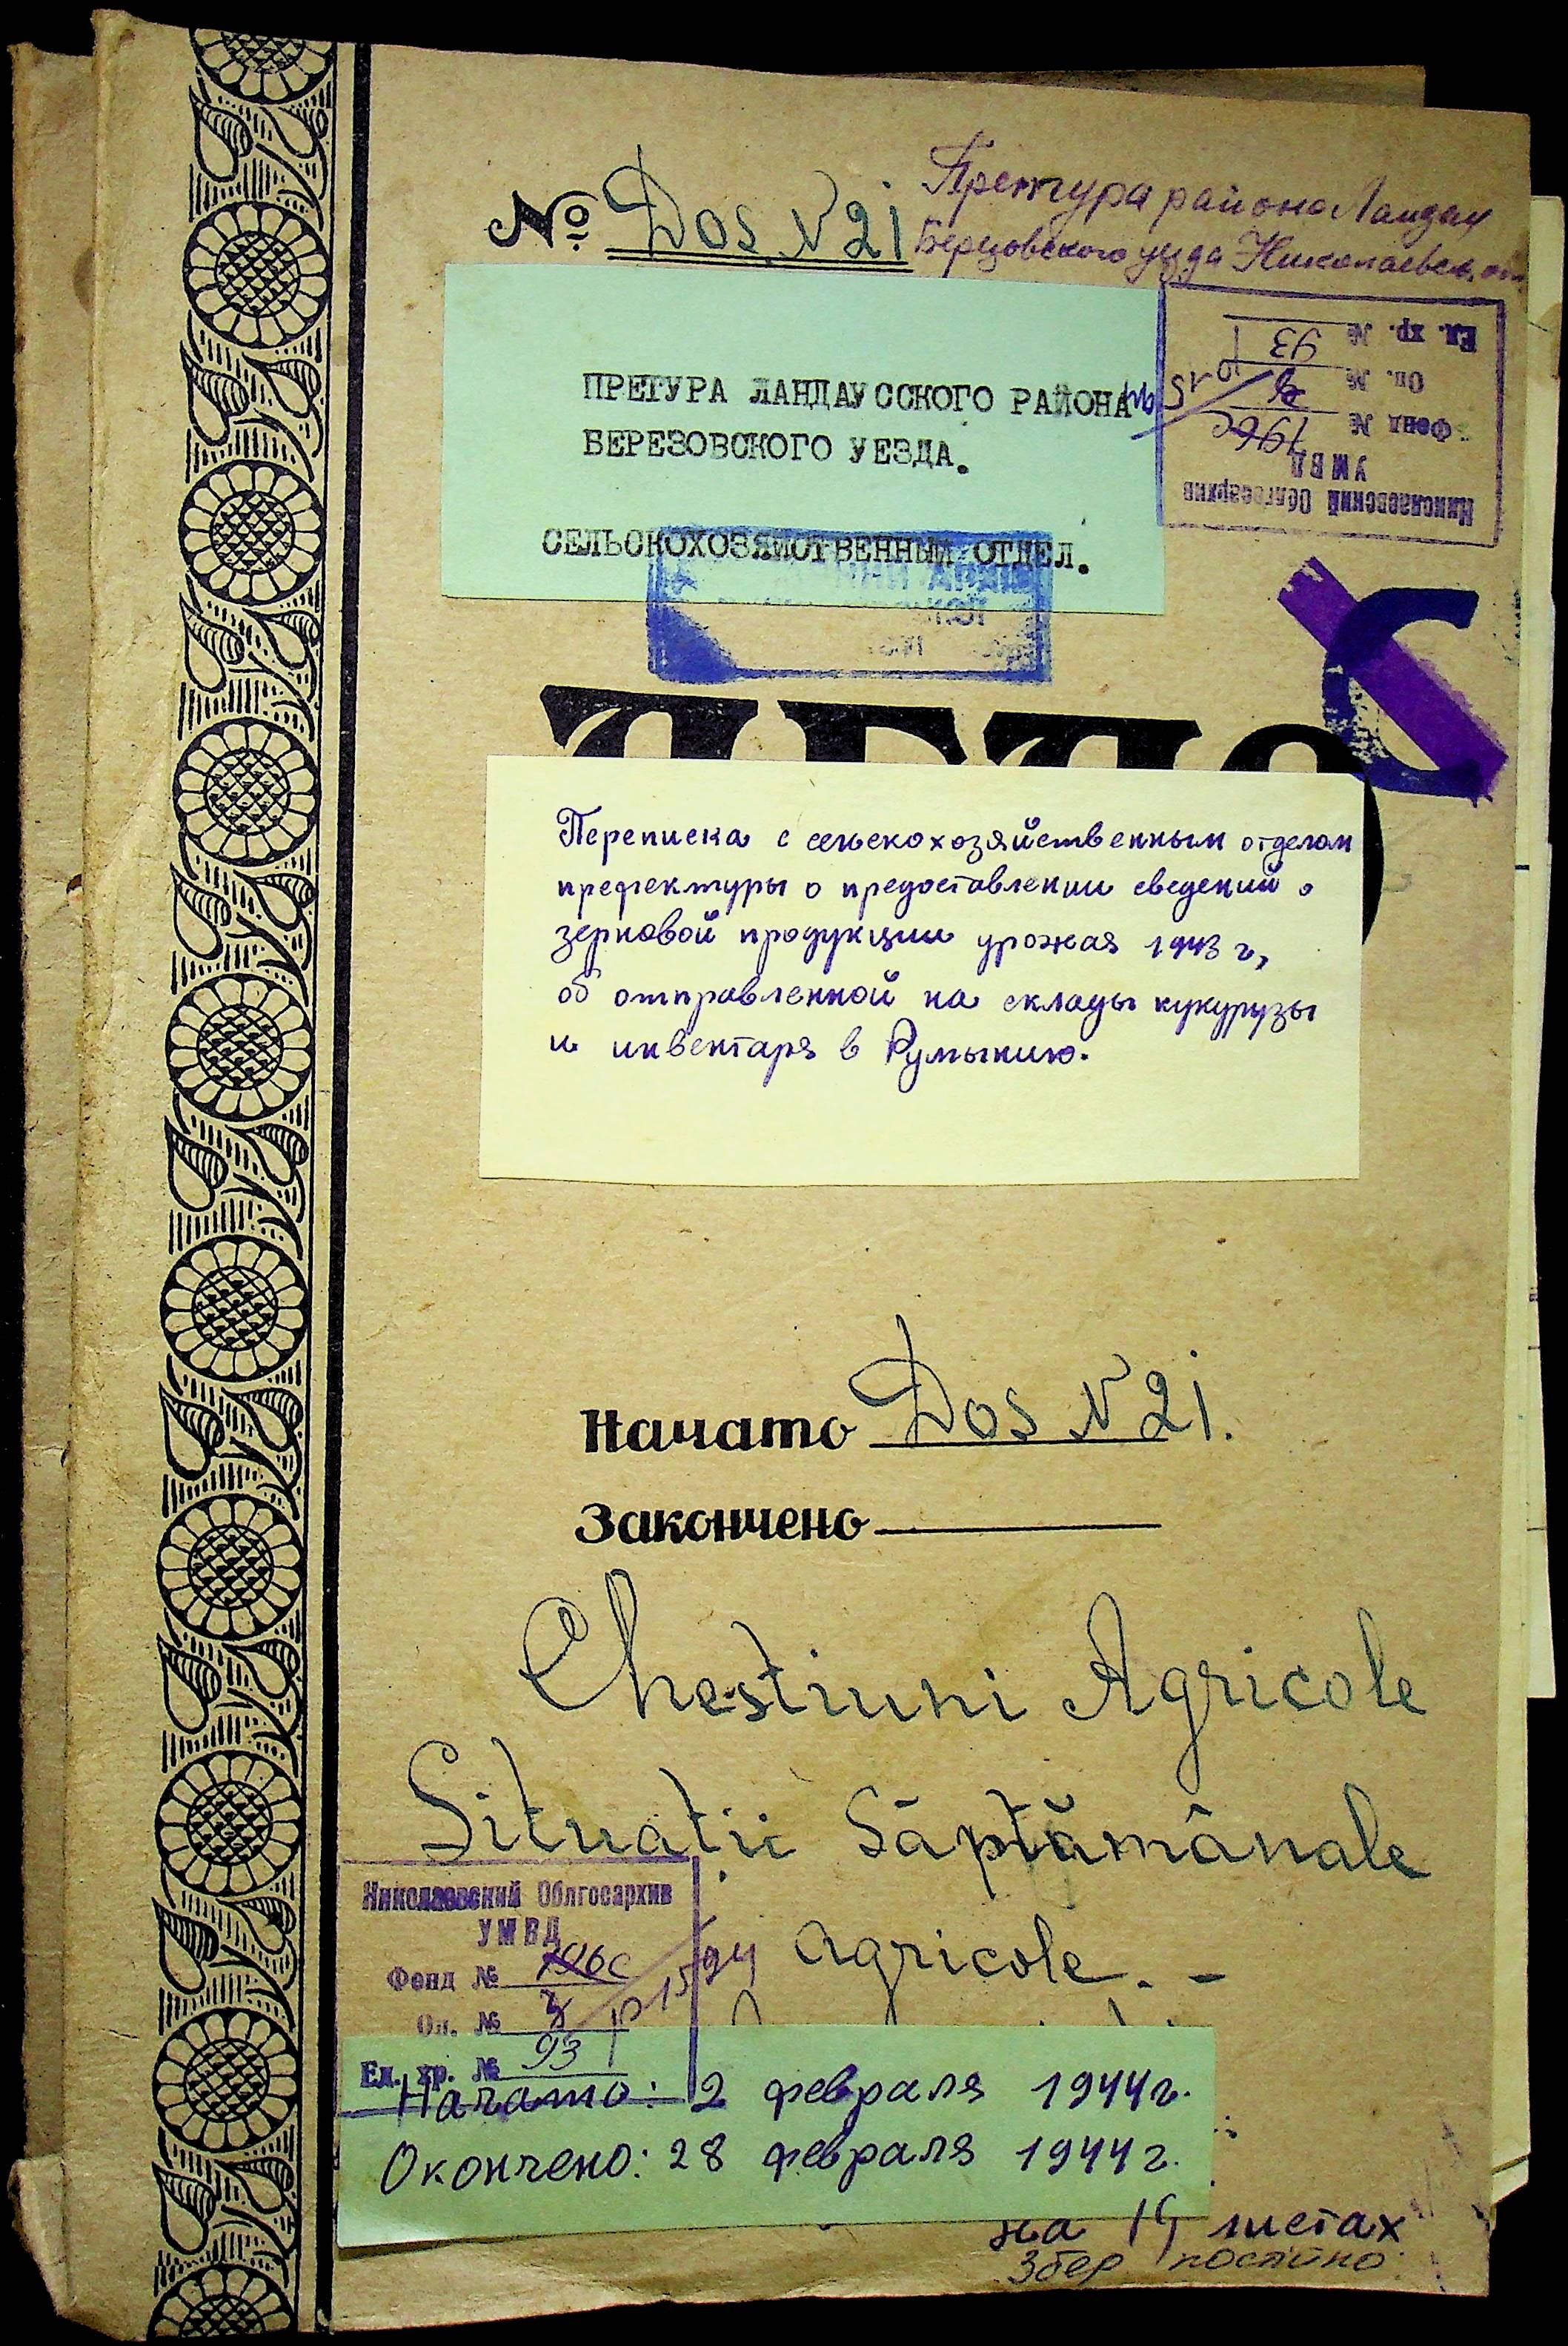 № Dos N 21
Претура района Ландау
Березовского уезда Николаевск. обл
ПРЕТУРА ЛАНДАУССКОГО РАЙОНА
БЕРЕЗОВСКОГО УЕЗДА.
СЕЛЬСКОХОЗЯЙСТВЕННЫЙ ОТДЕЛ.
Николаевский Облгосархив
УМВД
Фонд № 796с
Оп. №
Ед. хр. № 93
С
ДЕЛО
Переписка с сельскохозяйственным отделом
префектуры о предоставлении сведений о
зерновой продукции урожая 1943 г,
об отправленной на склады кукурузы
и инвентаря в Румынию.
Начато Dos N 21.
Закончено
Chestiuni Agricole
Situatii Săptămânale
agricole. -
Николаевский Облгосархив
УМВД
Фонд № 796с
Оп. №
Ед. хр. № 93
Начато: 2 февраля 1944г.
Окончено: 28 февраля 1944г.
на листах
Збер постійно